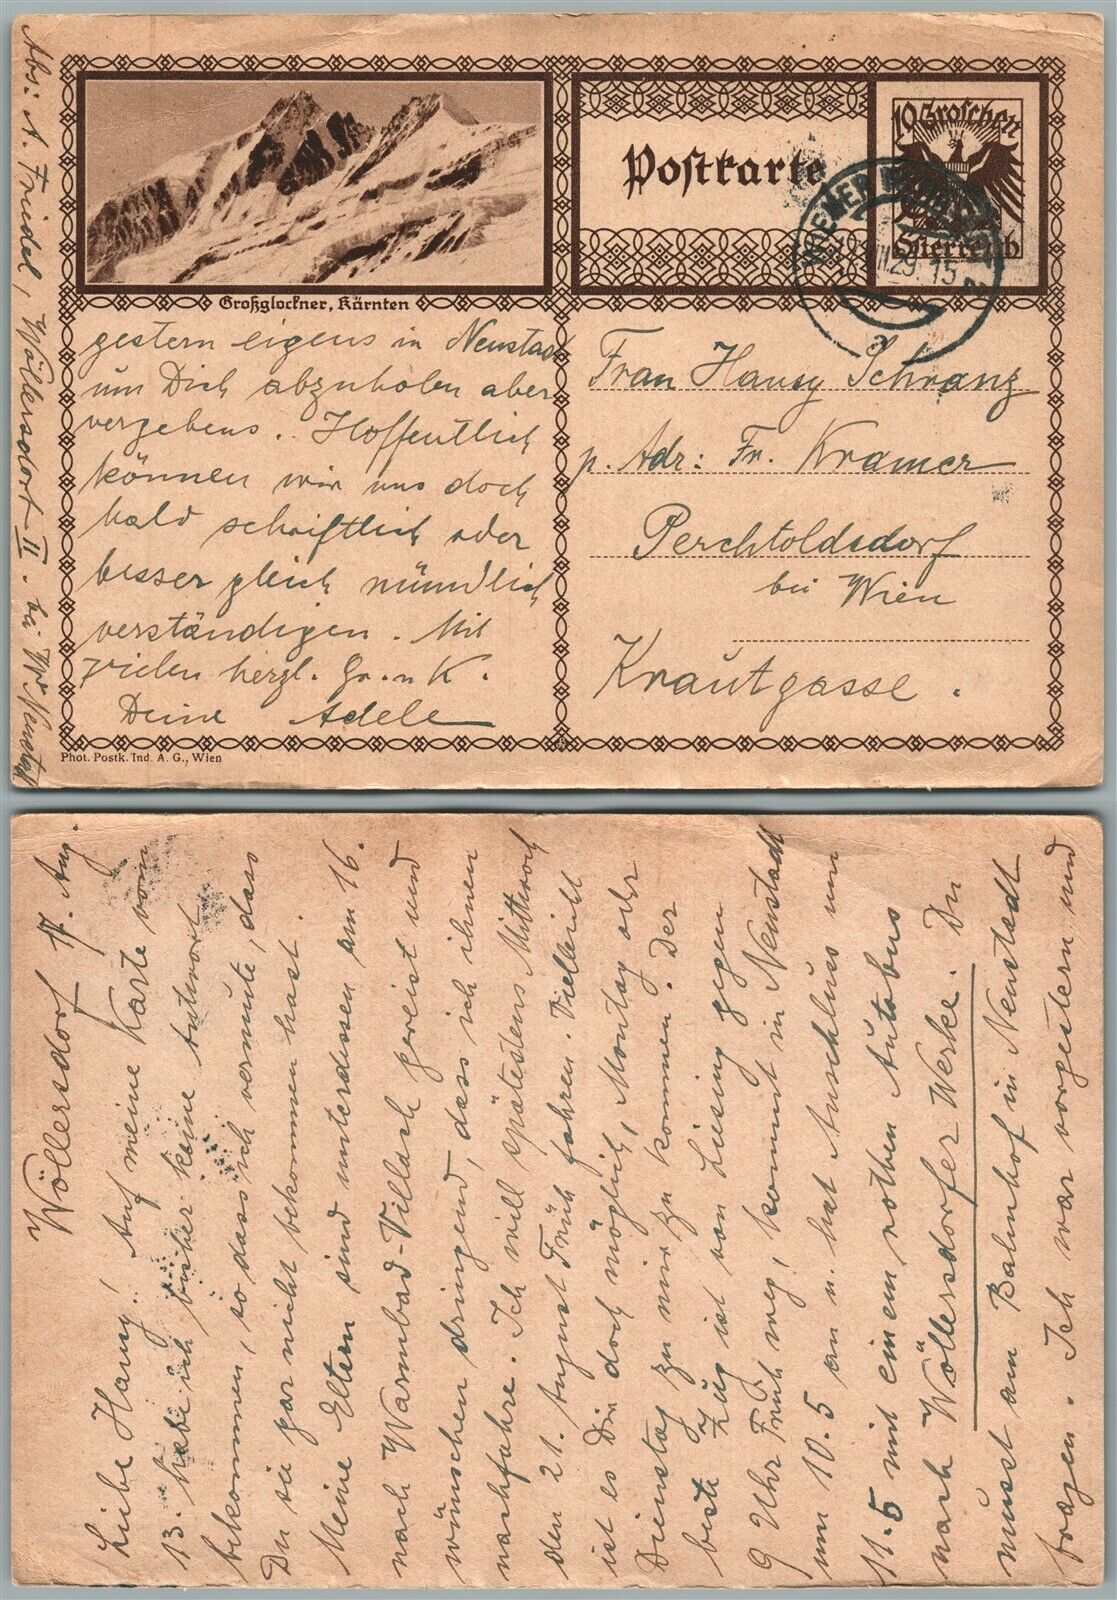 Abs: A. Friedel, Wöllersdorf II. bei Wr. Neustadt
Großglockner, Kärnten
Postkarte
10 Groschen
Österreich
WIENER NEUSTADT
VIII 29. 15
gestern eigens in Neustadt
um Dich abzuholen aber
vergebens. Hoffentlich
können wir uns doch
bald schriftlich oder
besser gleich mündlich
verständigen. Mit
vielen herzl. Gr. u K.
Deine Adele
Frau Hansy Schranz
p. Adr: Fr. Kramer
Perchtoldsdorf
bei Wien
Krautgasse.
Phot. Postk. Ind. A. G., Wien
Wöllersdorf 17. Aug.
Liebe Hansy! Auf meine Karte vom
13. habe ich bisher keine Antwort
bekommen, so dass ich vermute, dass
Du sie gar nicht bekommen hast.
Meine Eltern sind unterdessen am 16.
nach Warmbad-Villach gereist und
wünschen dringend, dass ich ihnen
nachfahre. Ich will spätestens Mittwoch
den 21. August Früh fahren. Vielleicht
ist es Dir doch möglich, Montag oder
Dienstag zu mir zu kommen. Der
beste Zug ist von Liesing gegen
9 Uhr Früh weg, kommt in Neustadt
um 10.5 an u. hat Anschluss um
11.5 mit einem rothen Autobus
nach Wöllersdorfer Werke. Du
musst am Bahnhof in Neustadt
fragen. Ich war vorgestern und